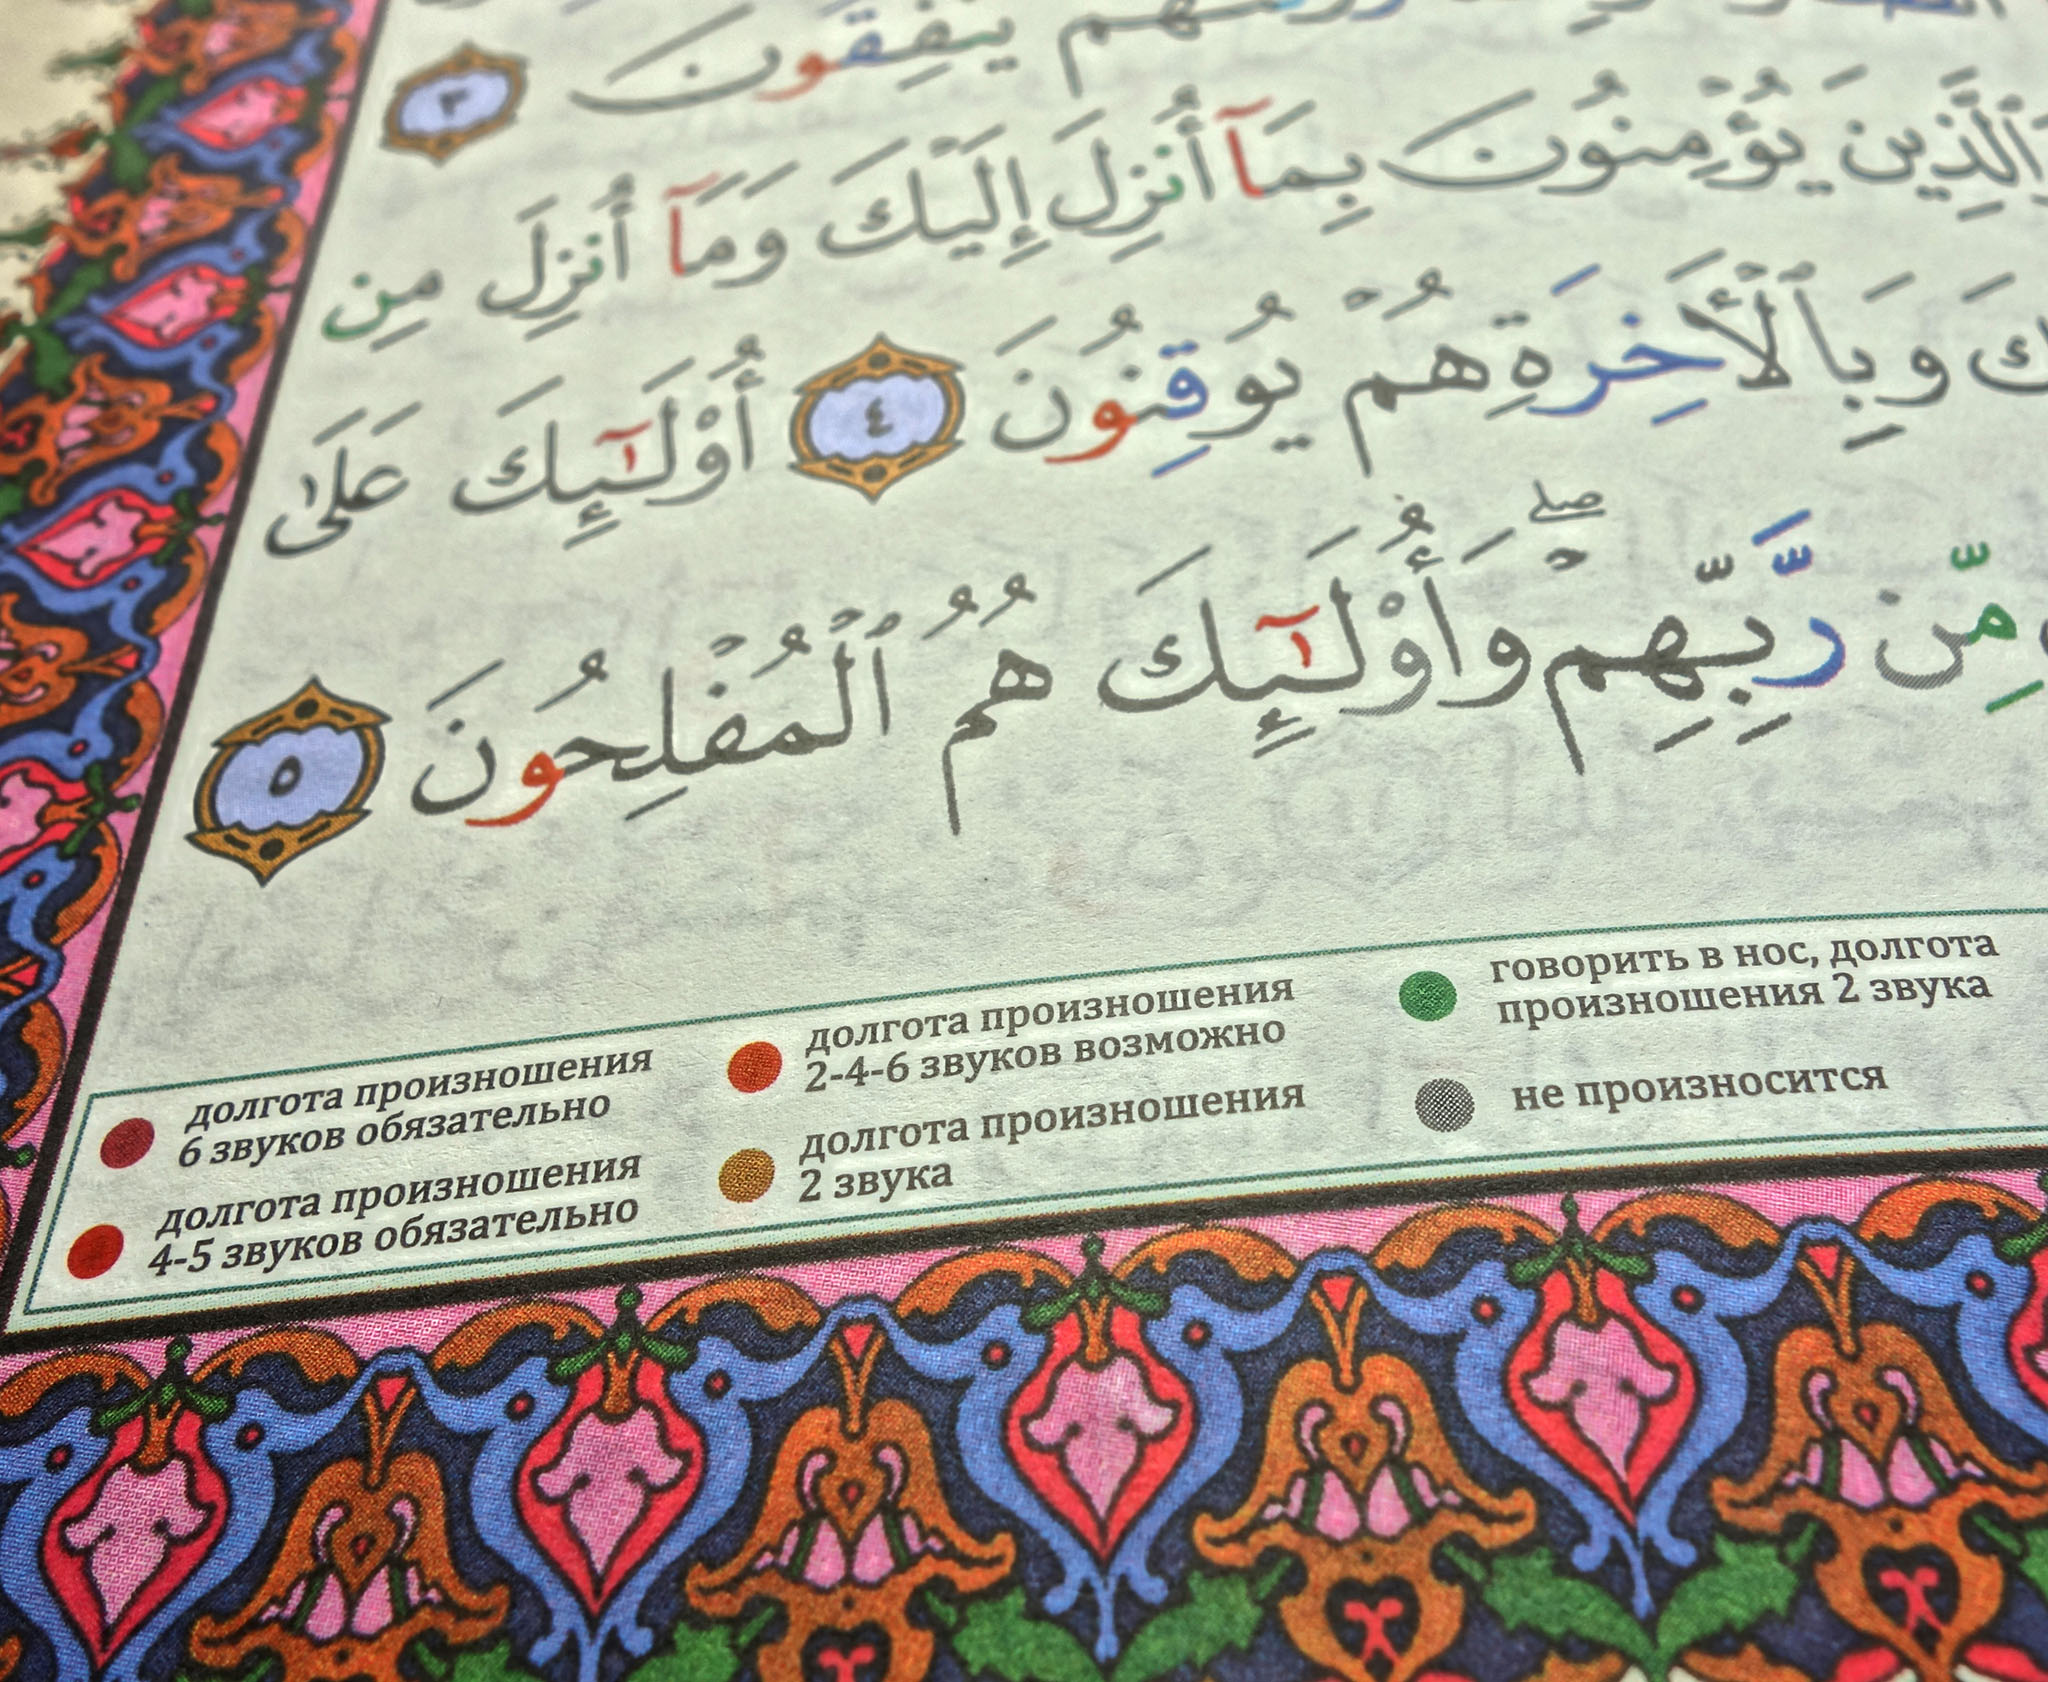 ينفقون ٣
والذين يؤمنون بمآ أنزل إليك ومآ أنزل من
وبٱلۡأٓخرة هُمۡ يُوقِنُونَ ٤ أُوْلَٰٓئِكَ عَلَىٰ
مِّن رَّبِّهِمۡۖ وَأُوْلَٰٓئِكَ هُمُ ٱلۡمُفۡلِحُونَ ٥
долгота произношения
6 звуков обязательно
долгота произношения
4-5 звуков обязательно
долгота произношения
2-4-6 звуков возможно
долгота произношения
2 звука
говорить в нос, долгота
произношения 2 звука
не произносится